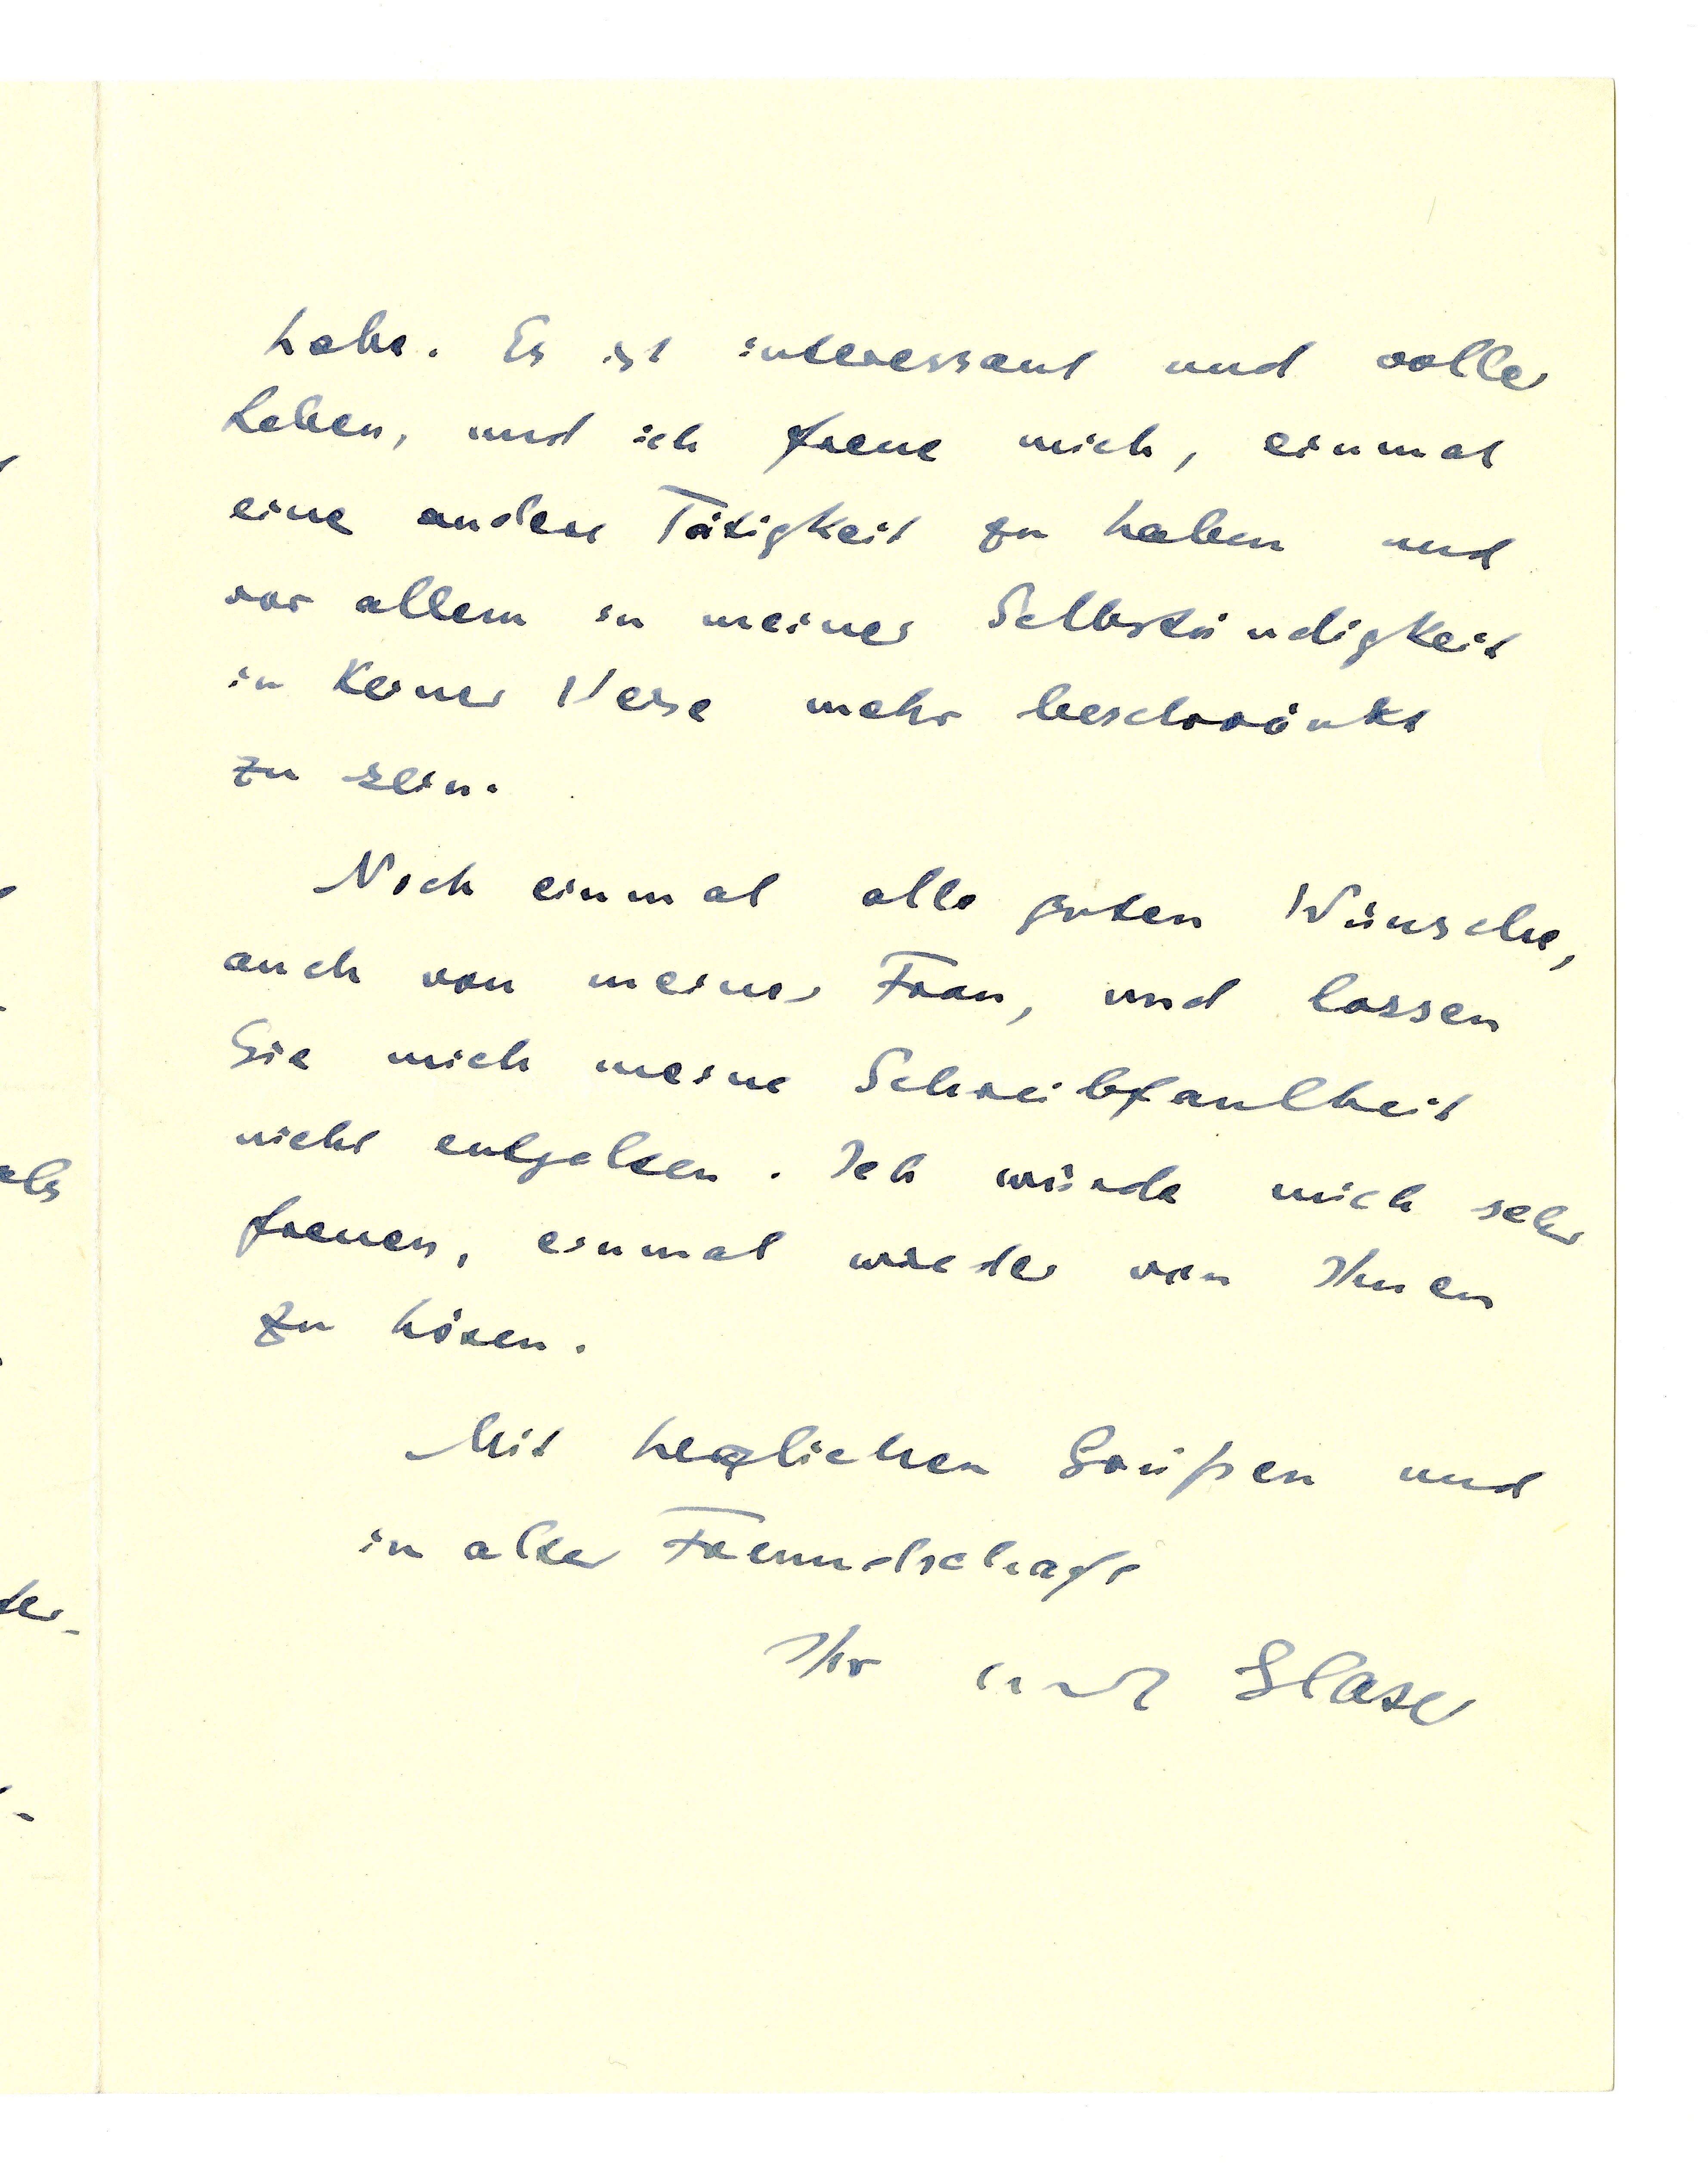 habe. Es ist interessant und voller
Leben, und ich freue mich, einmal
eine andere Tätigkeit zu haben und
vor allem in meiner Selbständigkeit
in keiner Weise mehr beschränkt
zu sein.
Noch einmal alle guten Wünsche,
auch von meiner Frau, und lassen
Sie mich meine Schreibfaulheit
nicht entgelten. Ich würde mich sehr
freuen, einmal wieder von Ihnen
zu hören.
Mit herzlichen Grüßen und
in alter Freundschaft
Ihr Glaser
als